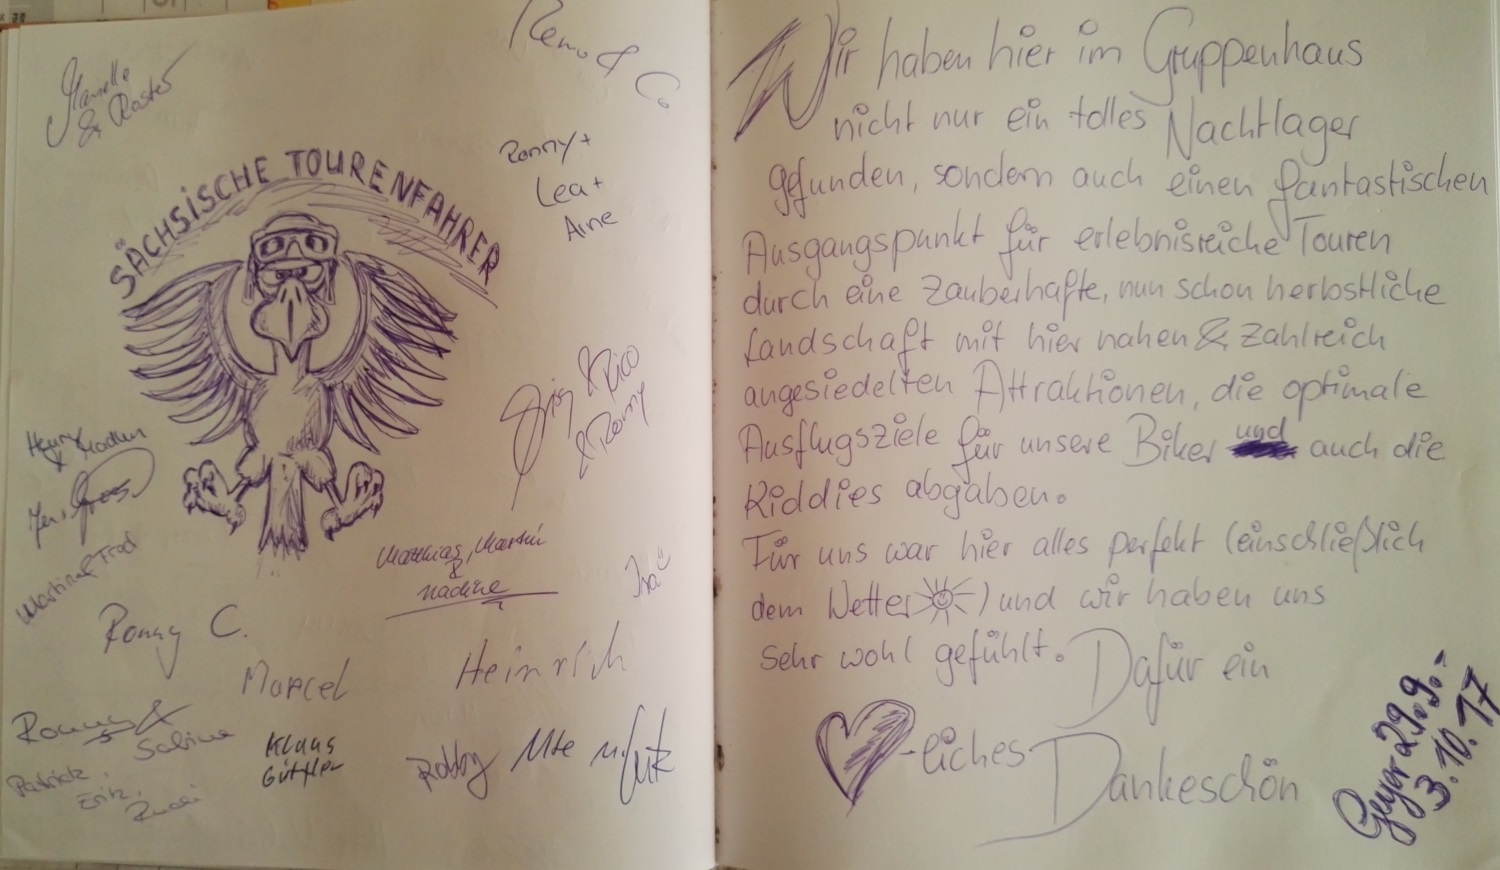 Remo & Co
SÄCHSISCHE TOURENFAHRER
Ronny +
Lea +
Arne
& Rico
& Ronny
Henry
Matthias, Martin
&
Nadine
Ronny C.
Marcel
Heinrich
Ronny &
Sabine
Patrick,
Klaus
Güttler
Robby
Ute u. Lutz
Wir haben hier im Gruppenhaus
nicht nur ein tolles Nachtlager
gefunden, sondern auch einen fantastischen
Ausgangspunkt für erlebnisreiche Touren
durch eine zauberhafte, nun schon herbstliche
Landschaft mit hier nahen & zahlreich
angesiedelten Attraktionen, die optimale
Ausflugsziele für unsere Biker und auch die
Kiddies abgaben.
Für uns war hier alles perfekt (einschließlich
dem Wetter ) und wir haben uns
sehr wohl gefühlt. Dafür ein
-liches Dankeschön
Geyer 29.9.-
3.10.17